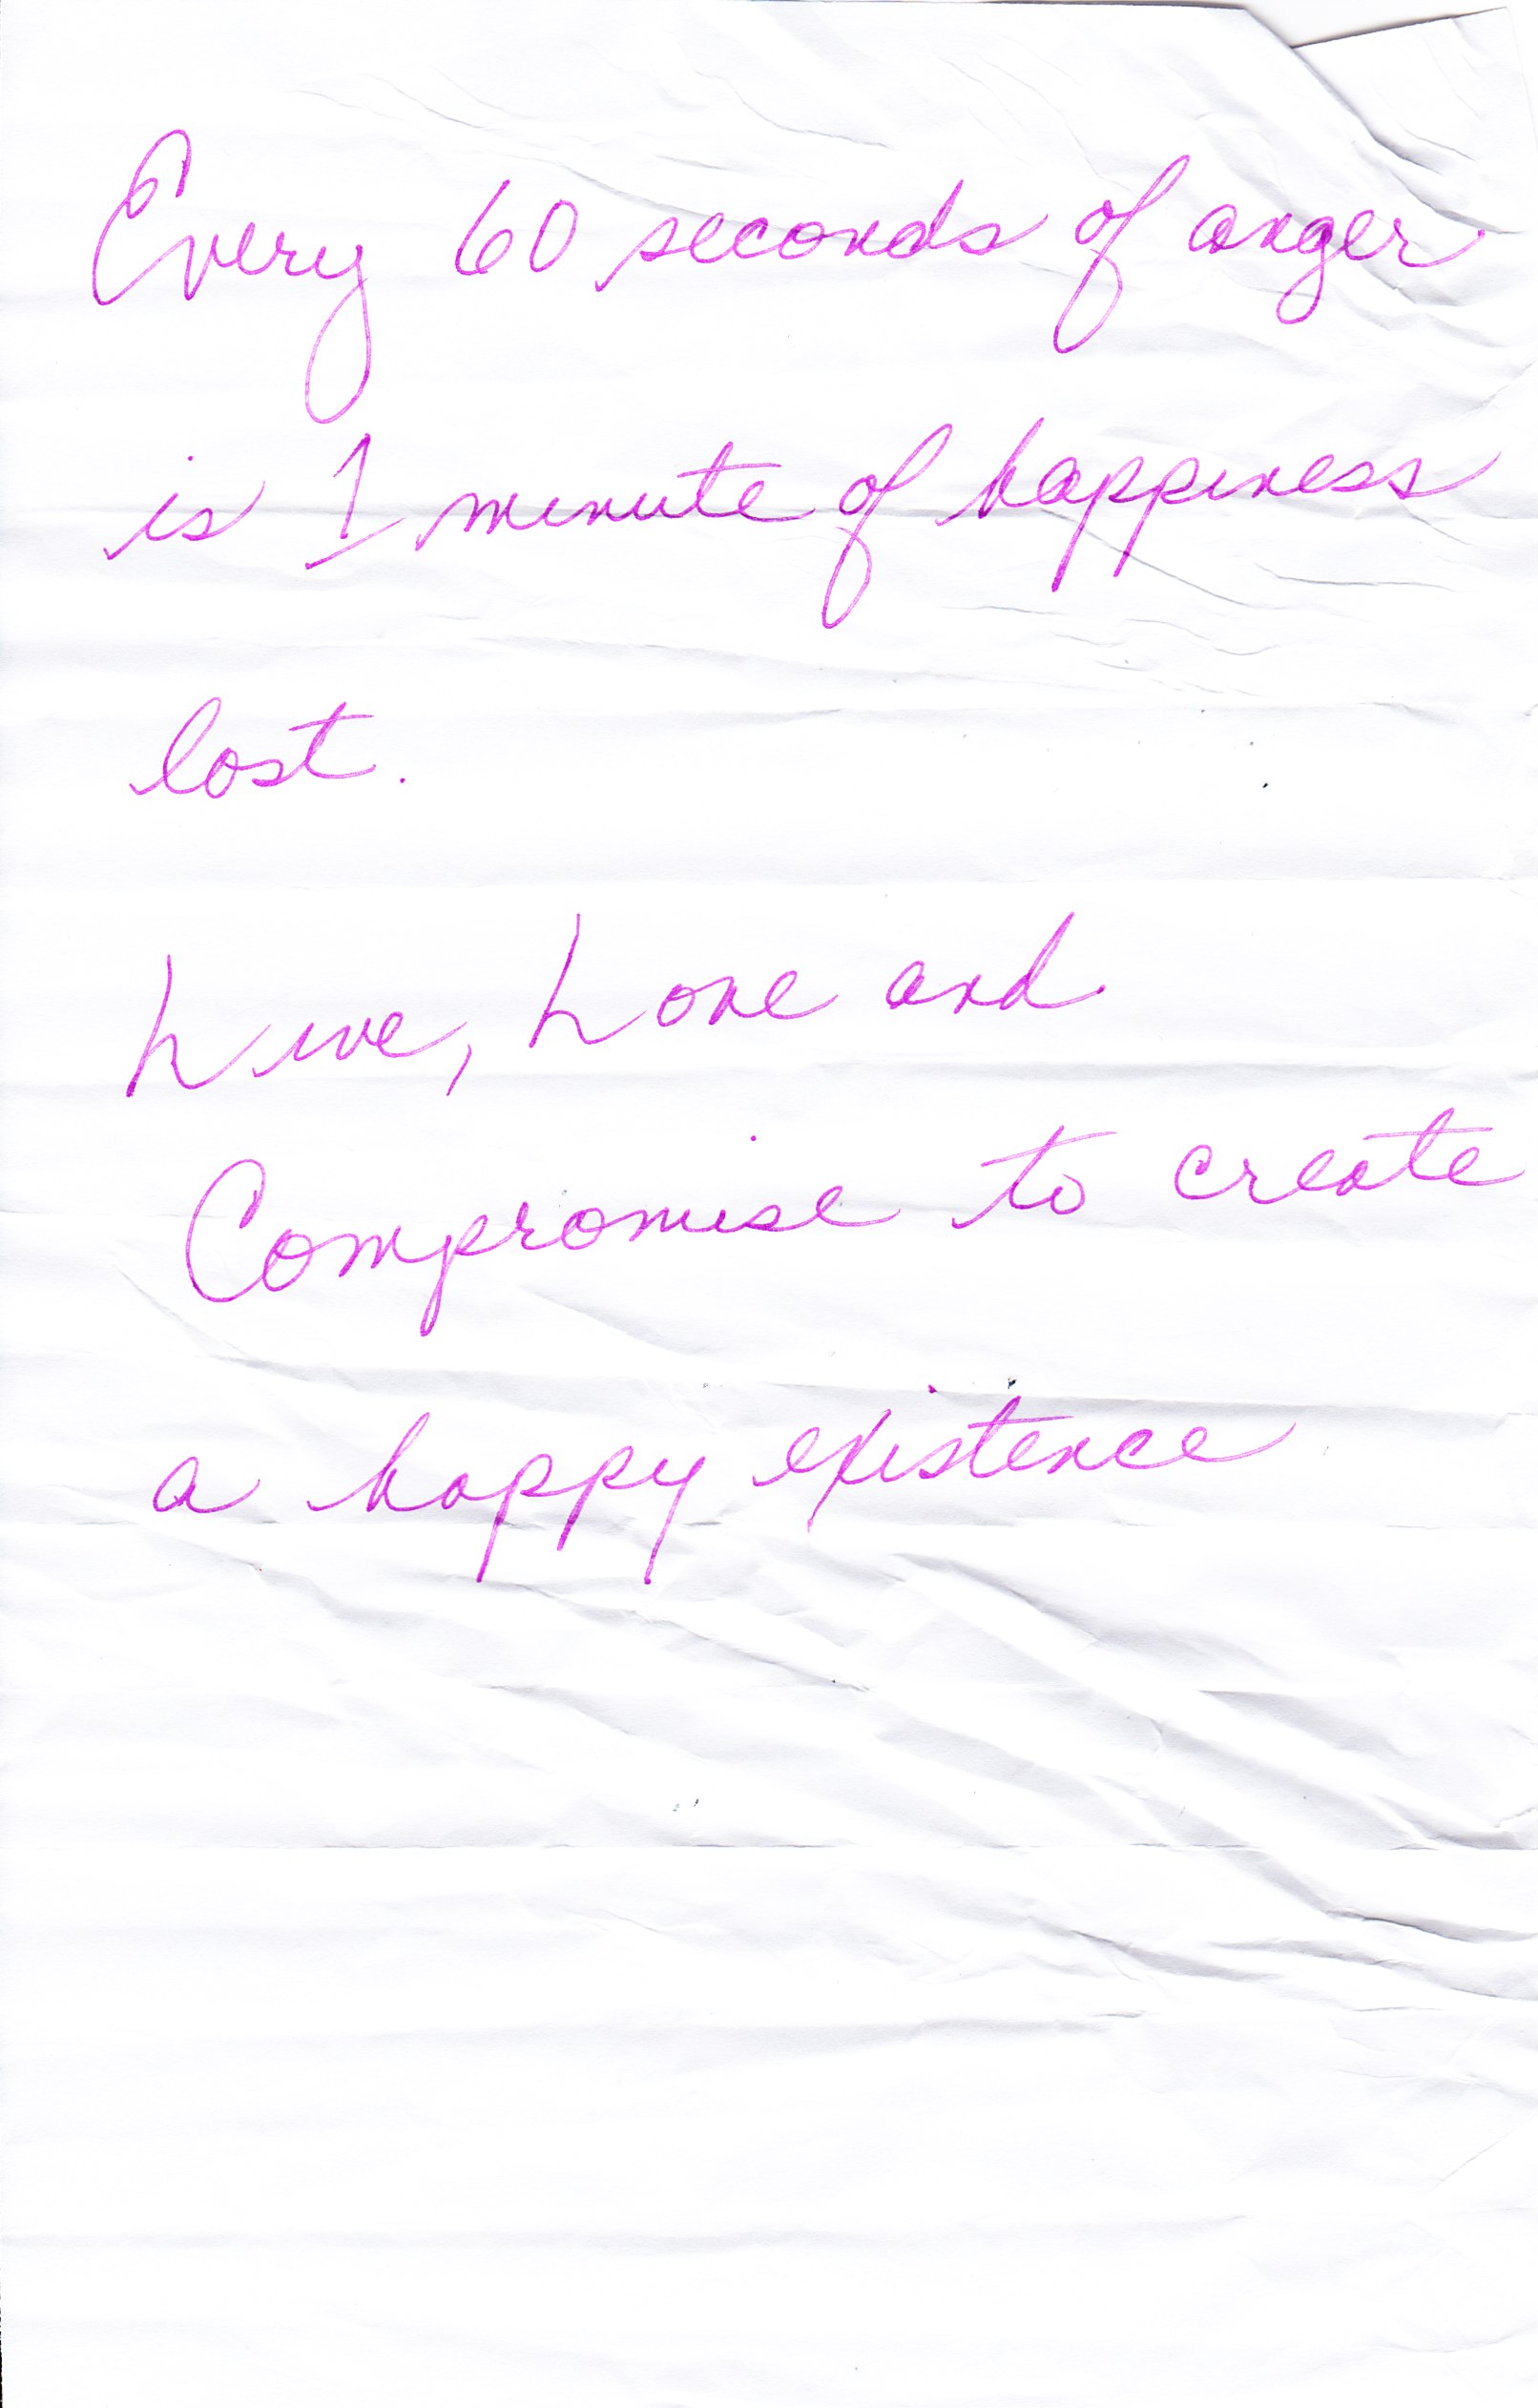 Every 60 seconds of anger
is 1 minute of happiness
lost.
Live, Love and
Compromise to create
a happy existence